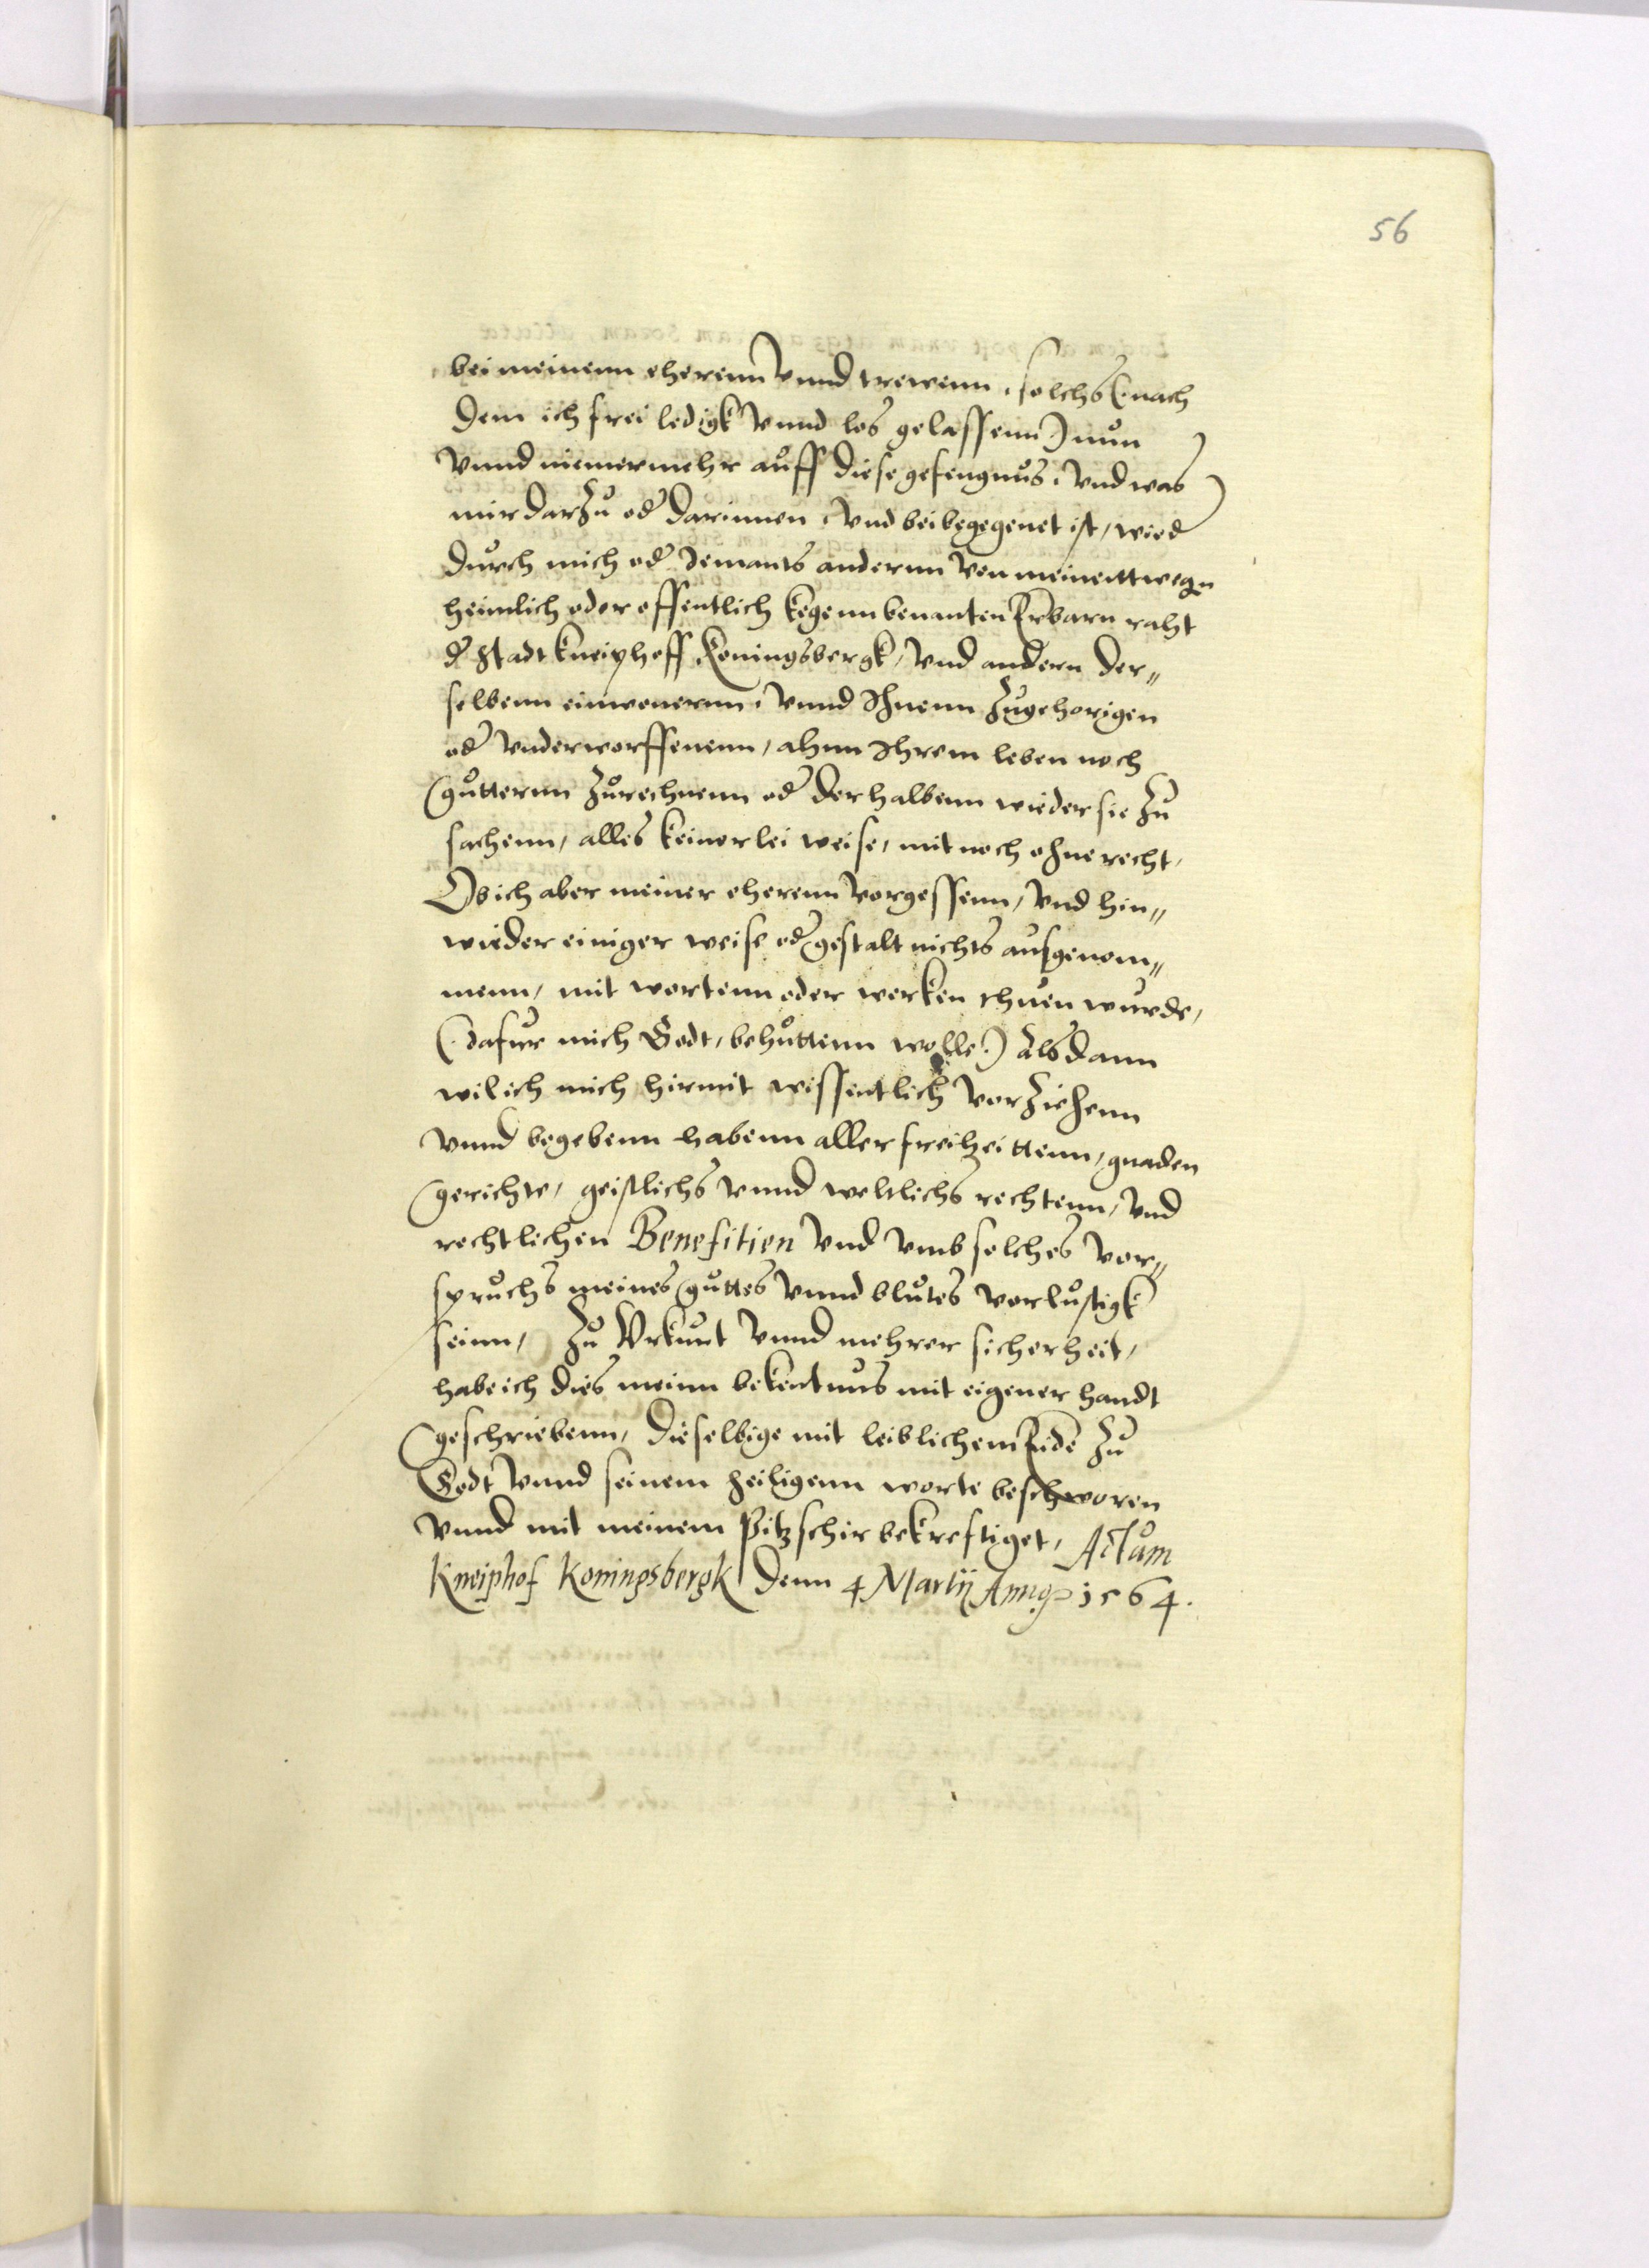 56
bei meinenn eherenn vnnd trewenn, solchs (: nach
dem ich frei ledigk vnnd los gelassenn) nun
vnnd niemermehr auff diese gefengnus, vnd was
mir darzu od darinnen, vnd bei begegenet ist, wied
durch mich od Jemants andernn von meinenttwegn
heimlich oder offentlich kegenn benanten Erbarn raht
d Stadt Kneiphoff Koningsbergk, vnd andern der=
selbenn einwonernn, vnnd Ihnenn zugehorigen
od vnderworffenenn, ahnn Ihrem leben noch
gutternn zurechnenn od derhalbenn wieder sie zu
sachenn, alles keinerlei weise, mit noch ohne recht,
Ob ich aber meiner eherenn vorgessenn, vnd hin=
wieder einiger weise od gestalt nichts ausgenom=
menn, mit wortenn oder werken thuen wurde,
(: dafur mich Godt, behuttenn wolle :) als dann
wil ich mich hirmit wissentlich vorziehenn
vnnd begebenn habenn aller freiheittenn, gnaden
gerichte, geistlichs vnnd weltlichs rechtenn, vnd
rechtlichen Benefitien vnd vmb solches vor=
spruchs meines guttes vnnd blutes vorlustigk
seinn, Zu Vrkunt vnnd mehrer sicherheit,
habe ich dies meinn bekentnus mit eigener handt
geschriebenn, dieselbige mit leiblichem Eide zu
Godt vnnd seinem heiligenn worte beschworen
vnnd mit meinem Pitzschir bekreftiget, Actum
Kneiphof Koningsbergk denn 4 Martij Anno 1564.